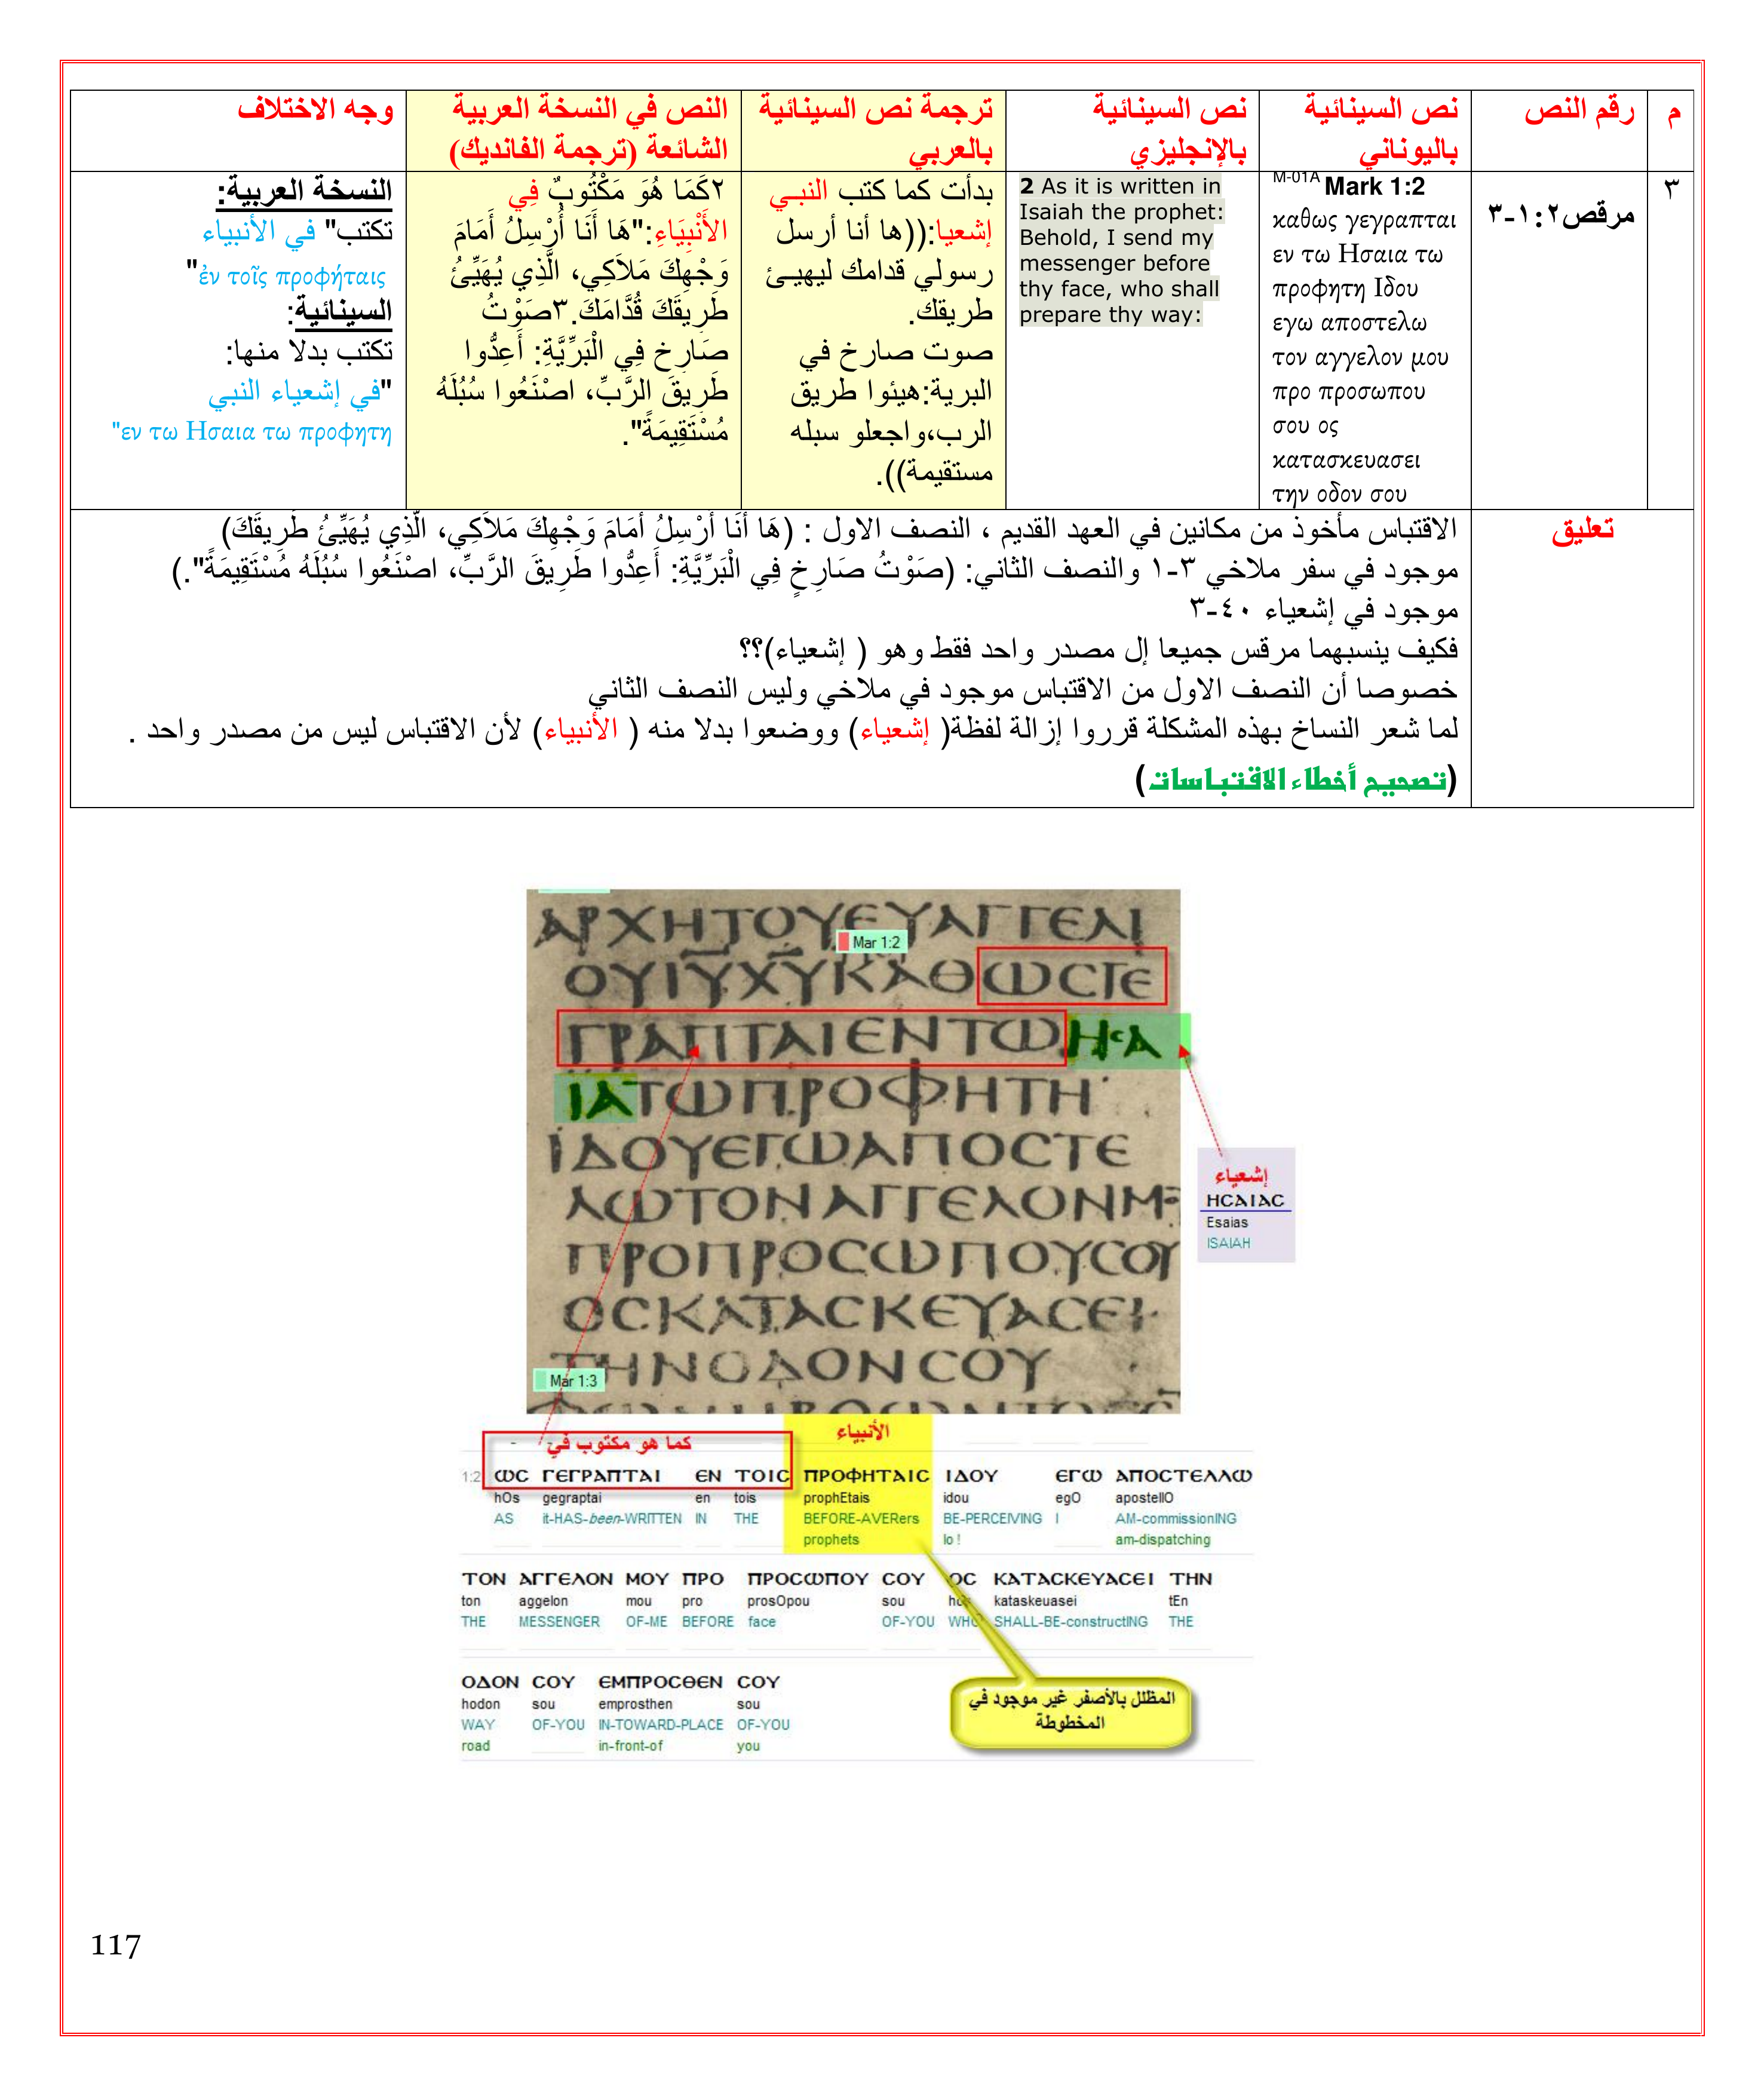 م
رقم النص
نص السينائية
باليوناني
نص السينائية
بالإنجليزي
ترجمة نص السينائية
بالعربي
النص في النسخة العربية
الشائعة (ترجمة الفانديك)
وجه الاختلاف
٣
مرقص١:٢-٣
M-01A Mark 1:2
καθως γεγραπται
εν τω Ησαια τω
προφητη Ιδου
εγω αποστελω
τον αγγελον μου
προ προσωπου
σου ος
κατασκευασει
την οδον σου
2 As it is written in
Isaiah the prophet:
Behold, I send my
messenger before
thy face, who shall
prepare thy way:
بدأت كما كتب النبي
إشعيا:((ها أنا أرسل
رسولي قدامك ليهيئ
طريقك.
صوت صارخ في
البرية:هيئوا طريق
الرب،واجعلو سبله
مستقيمة)).
٢كَمَا هُوَ مَكْتُوبٌ فِي
الأَنْبِيَاءِ:"هَا أَنَا أُرْسِلُ أَمَامَ
وَجْهِكَ مَلاَكِي، الَّذِي يُهَيِّئُ
طَرِيقَكَ قُدَّامَكَ.٣صَوْتُ
صَارِخٍ فِي الْبَرِّيَّةِ: أَعِدُّوا
طَرِيقَ الرَّبِّ، اصْنَعُوا سُبُلَهُ
مُسْتَقِيمَةً".
النسخة العربية:
تكتب" في الأنبياء
ἐν τοῖς προφήταις"
السينائية:
تكتب بدلا منها:
"في إشعياء النبي
εν τω Ησαια τω προφητη"
تعليق
الاقتباس مأخوذ من مكانين في العهد القديم ، النصف الاول : (هَا أَنَا أُرْسِلُ أَمَامَ وَجْهِكَ مَلاَكِي، الَّذِي يُهَيِّئُ طَرِيقَكَ)
موجود في سفر ملاخي ٣-١ والنصف الثاني: (صَوْتُ صَارِخٍ فِي الْبَرِّيَّةِ: أَعِدُّوا طَرِيقَ الرَّبِّ، اصْنَعُوا سُبُلَهُ مُسْتَقِيمَةً".)
موجود في إشعياء ٤٠-٣
فكيف ينسبهما مرقس جميعا إل مصدر واحد فقط وهو ( إشعياء)؟؟
خصوصا أن النصف الاول من الاقتباس موجود في ملاخي وليس النصف الثاني
لما شعر النساخ بهذه المشكلة قرروا إزالة لفظة( إشعياء) ووضعوا بدلا منه ( الأنبياء) لأن الاقتباس ليس من مصدر واحد .
(تصحيح أخطاء الاقتباسات)
ΑΡΧΗΤΟΥΕΥΑΓΓΕΛΙ
Mar 1:2
ΟΥΙΥΧΥΚΑΘΩϹΓΕ
ΓΡΑΠΤΑΙΕΝΤΩΗϹΑ
ΙΑΤΩΠΡΟΦΗΤΗ
ΪΔΟΥΕΓΩΑΠΟϹΤΕ
ΛΩΤΟΝΑΓΓΕΛΟΝΜ
ΠΡΟΠΡΟϹΩΠΟΥϹΟΥ
ΟϹΚΑΤΑϹΚΕΥΑϹΕΙ
ΤΗΝΟΔΟΝϹΟΥ
Mar 1:3
إشعياء
ΗϹΑΙΑϹ
Esaias
ISAIAH
كما هو مكتوب في
الأنبياء
1:2 ΩϹ ΓΕΓΡΑΠΤΑΙ ΕΝ ΤΟΙϹ ΠΡΟΦΗΤΑΙϹ ΙΔΟΥ ΕΓΩ ΑΠΟϹΤΕΛΛΩ
hOs gegraptai en tois prophEtais idou egO apostellO
AS it-HAS-been-WRITTEN IN THE BEFORE-AVERers BE-PERCEIVING I AM-commissionING
prophets lo ! am-dispatching
ΤΟΝ ΑΓΓΕΛΟΝ ΜΟΥ ΠΡΟ ΠΡΟϹΩΠΟΥ ϹΟΥ ΟϹ ΚΑΤΑϹΚΕΥΑϹΕΙ ΤΗΝ
ton aggelon mou pro prosOpou sou hos kataskeuasei tEn
THE MESSENGER OF-ME BEFORE face OF-YOU WHO SHALL-BE-constructING THE
ΟΔΟΝ ϹΟΥ ΕΜΠΡΟϹΘΕΝ ϹΟΥ
hodon sou emprosthen sou
WAY OF-YOU IN-TOWARD-PLACE OF-YOU
road in-front-of you
المظلل بالأصفر غير موجود في
المخطوطة
117